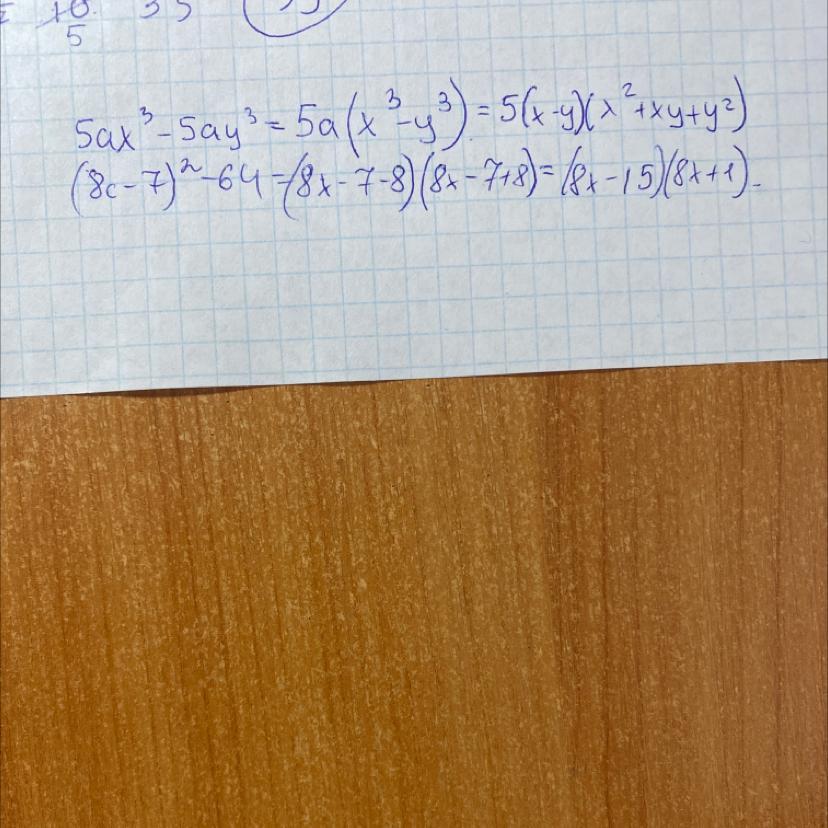 10
5
5ax³ - 5ay³ = 5a(x³ - y³) = 5(x-y)(x² + xy + y²)
(8c - 7)² - 64 = (8x - 7 - 8)(8x - 7 + 8) = (8x - 15)(8x + 1).